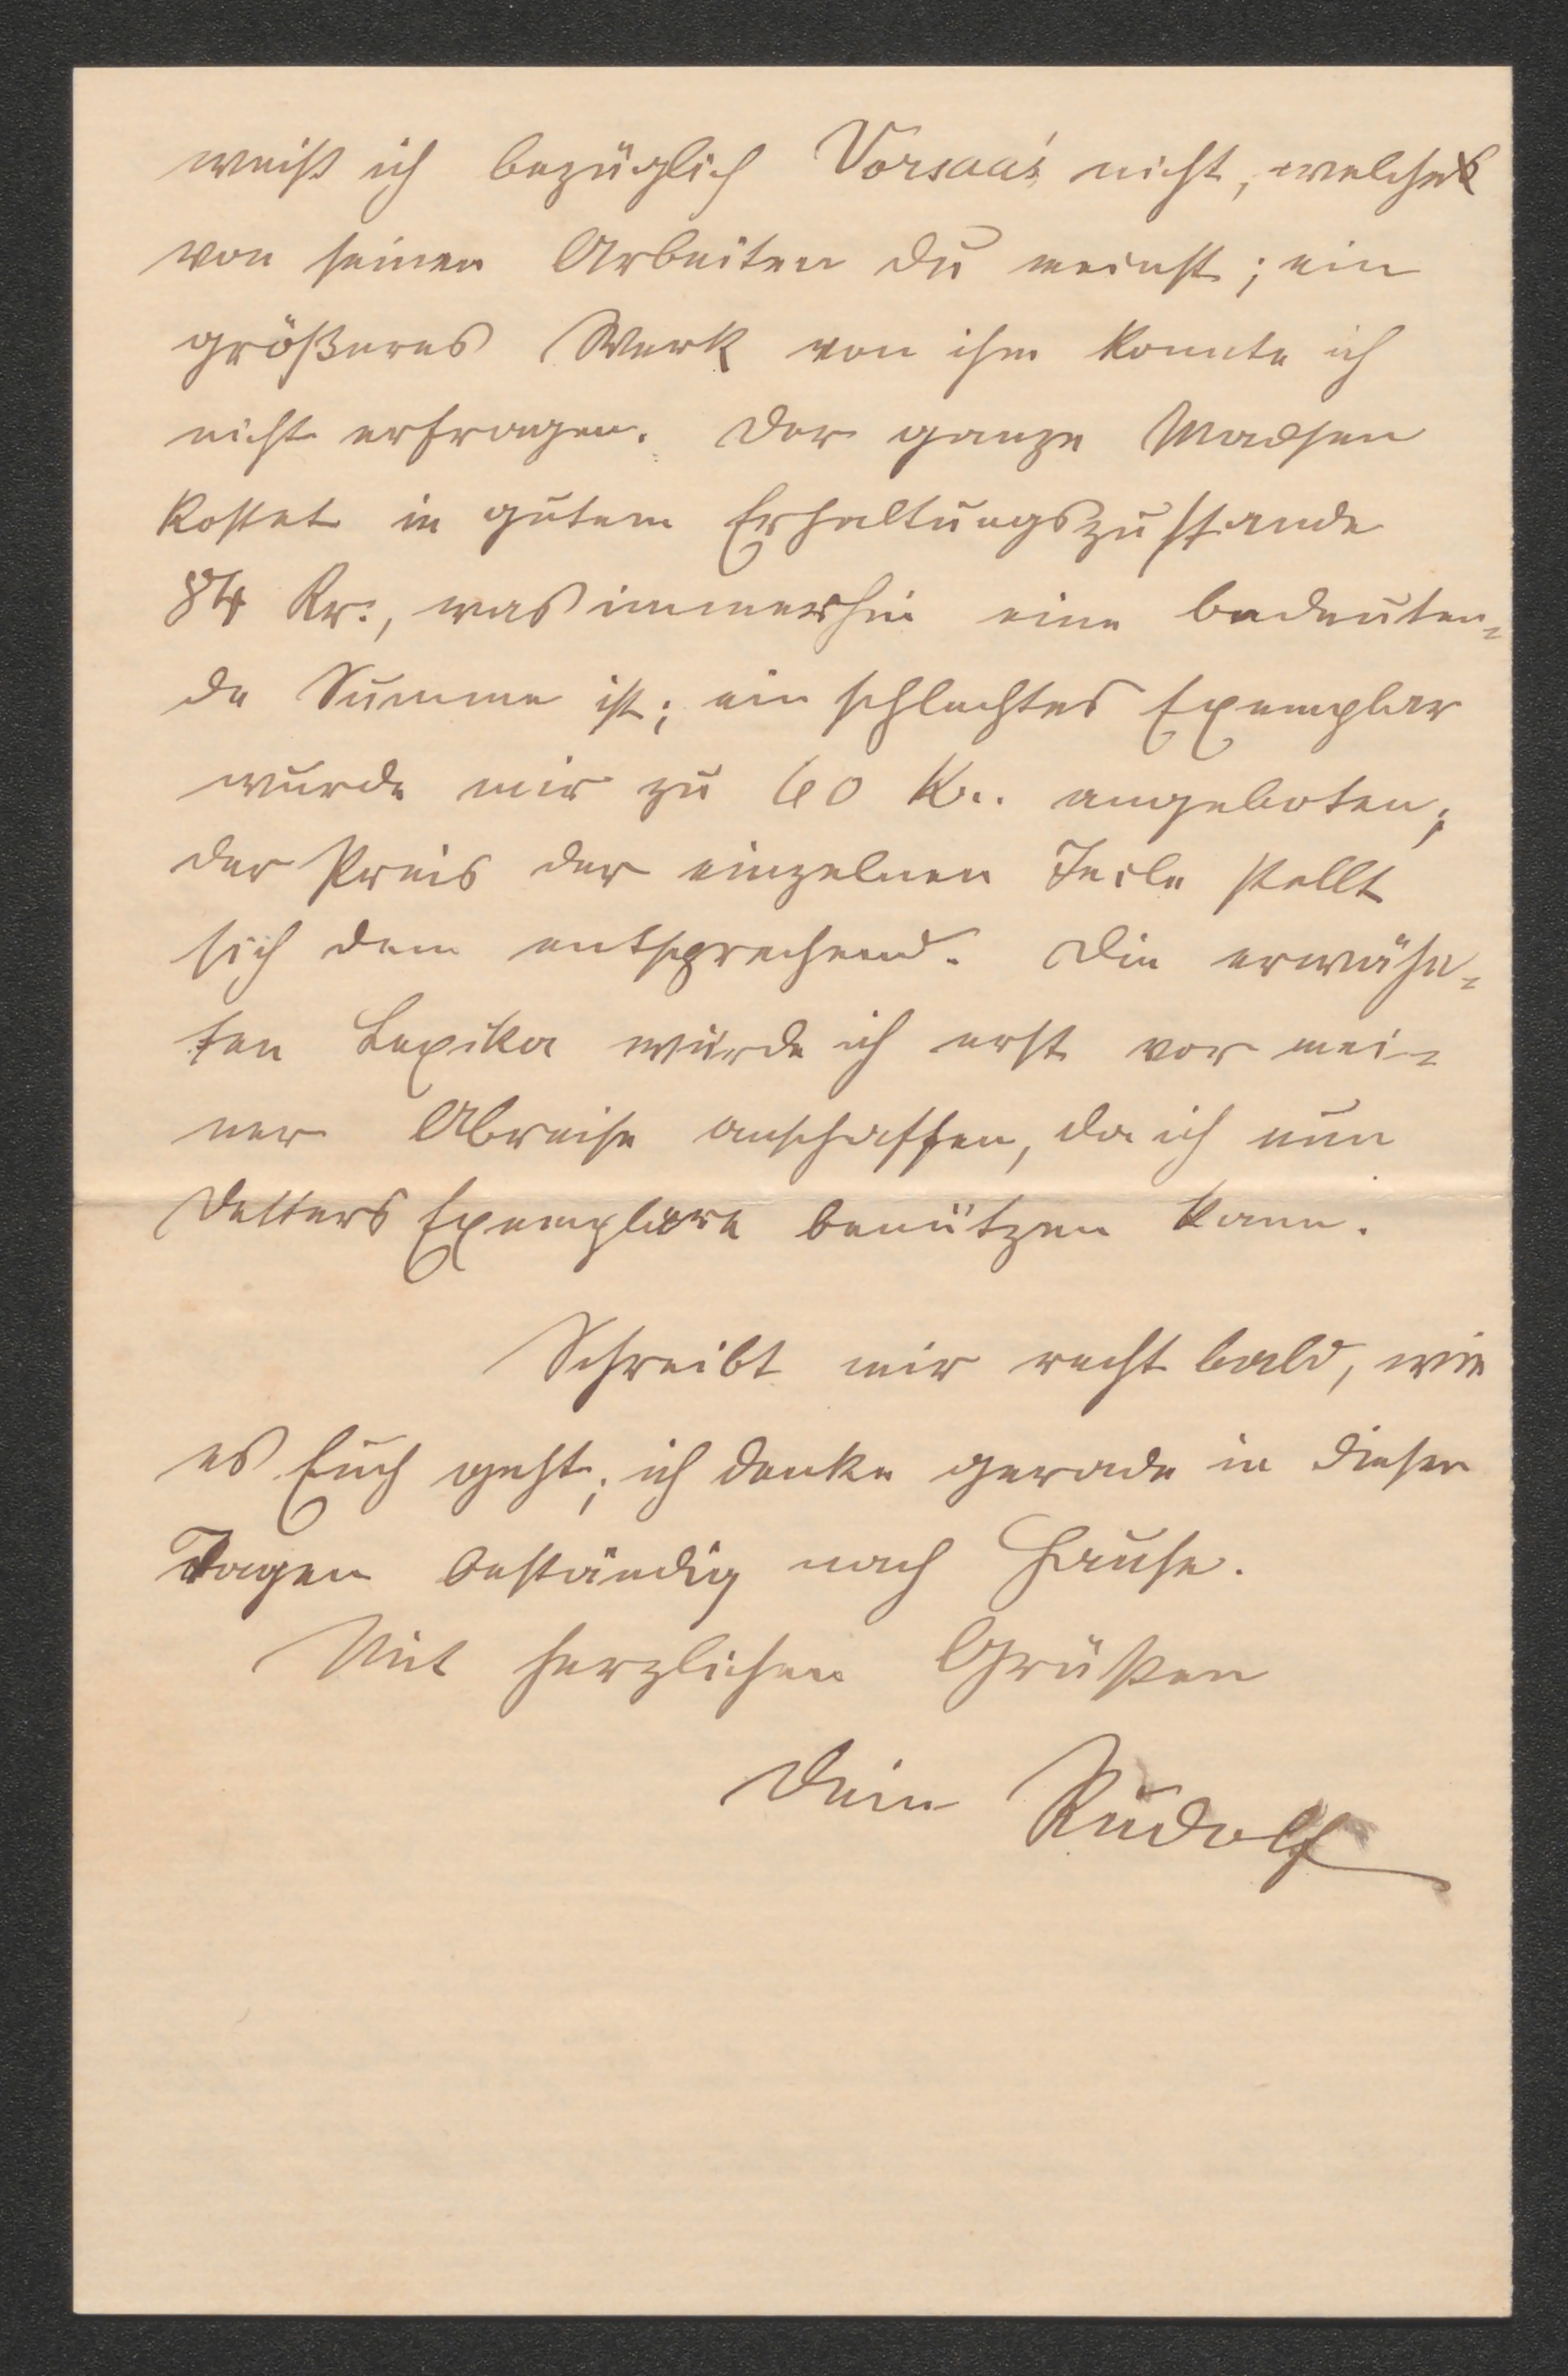 weiß ich bezüglich Vorsaa's nicht, welches
von seinen Arbeiten du meinst; ein
größeres Werk von ihm konnte ich
nicht erfragen. Der ganze Madsen
kostet in gutem Erhaltungszustande
84 Kr., was immerhin eine bedeuten=
de Summe ist; ein schlechtes Exemplar
wurde mir zu 60 Kr. angeboten;
der Preis der einzelnen Teile stellt
sich dem entsprechend. Die erwähn=
ten Lexika würde ich erst vor mei=
ner Abreise anschaffen, da ich nun
Detters Exemplare benützen kann.
Schreibt mir recht bald, wie
es Euch geht; ich denke gerade in diesen
Tagen beständig nach Hause.
Mit herzlichen Grüßen
Dein Rudolf